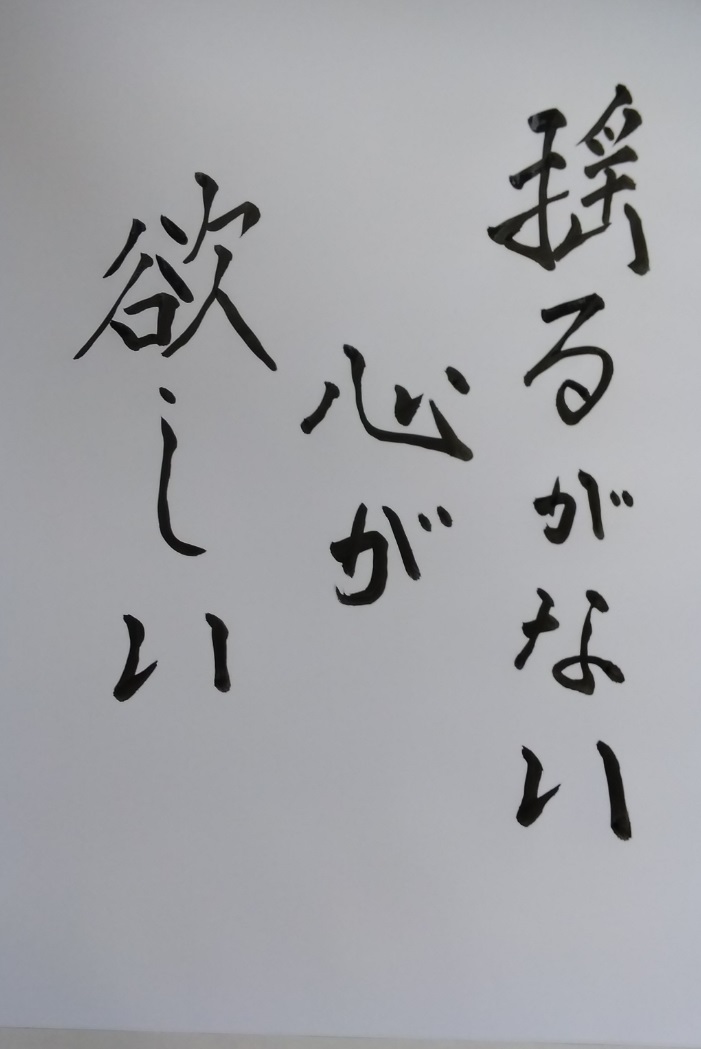 揺るがない
心が
欲しい